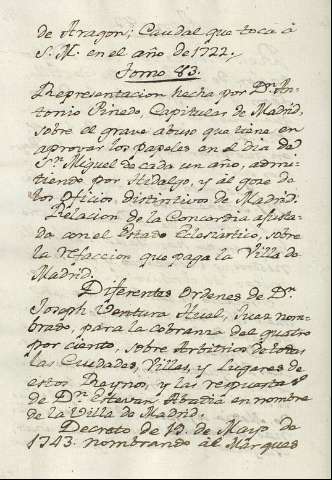 de Aragon; Caudal que toca â
S. M. en el año de 1722.
Tomo 83.
Representacion hecha por Dn. An-
tonio Pinedo, Capitular de Madrid,
sobre el grave abuso que tiene en
aprovar los papeles en el dia de
Sn. Miguel de cada un año, admi-
tiendo por Hidalgo, y al goze de
los Oficios distintivos de Madrid.
Relacion de la Concordia ajusta-
da con el Estado Eclesiastico, sobre
la Refaccion que paga la Villa de
Madrid.
Diferentes Ordenes de Dn.
Joseph Ventura Huel, Juez nom-
brado, para la cobranza del quatro
por ciento, sobre Arbitrios de todas
las Ciudades, Villas, y Lugares de
estos Reynos, y las respuestas
de Dn. Estevan Abadia en nombre
de la Villa de Madrid.
Decreto de 19. de Mayo de
1743. nombrando al Marques